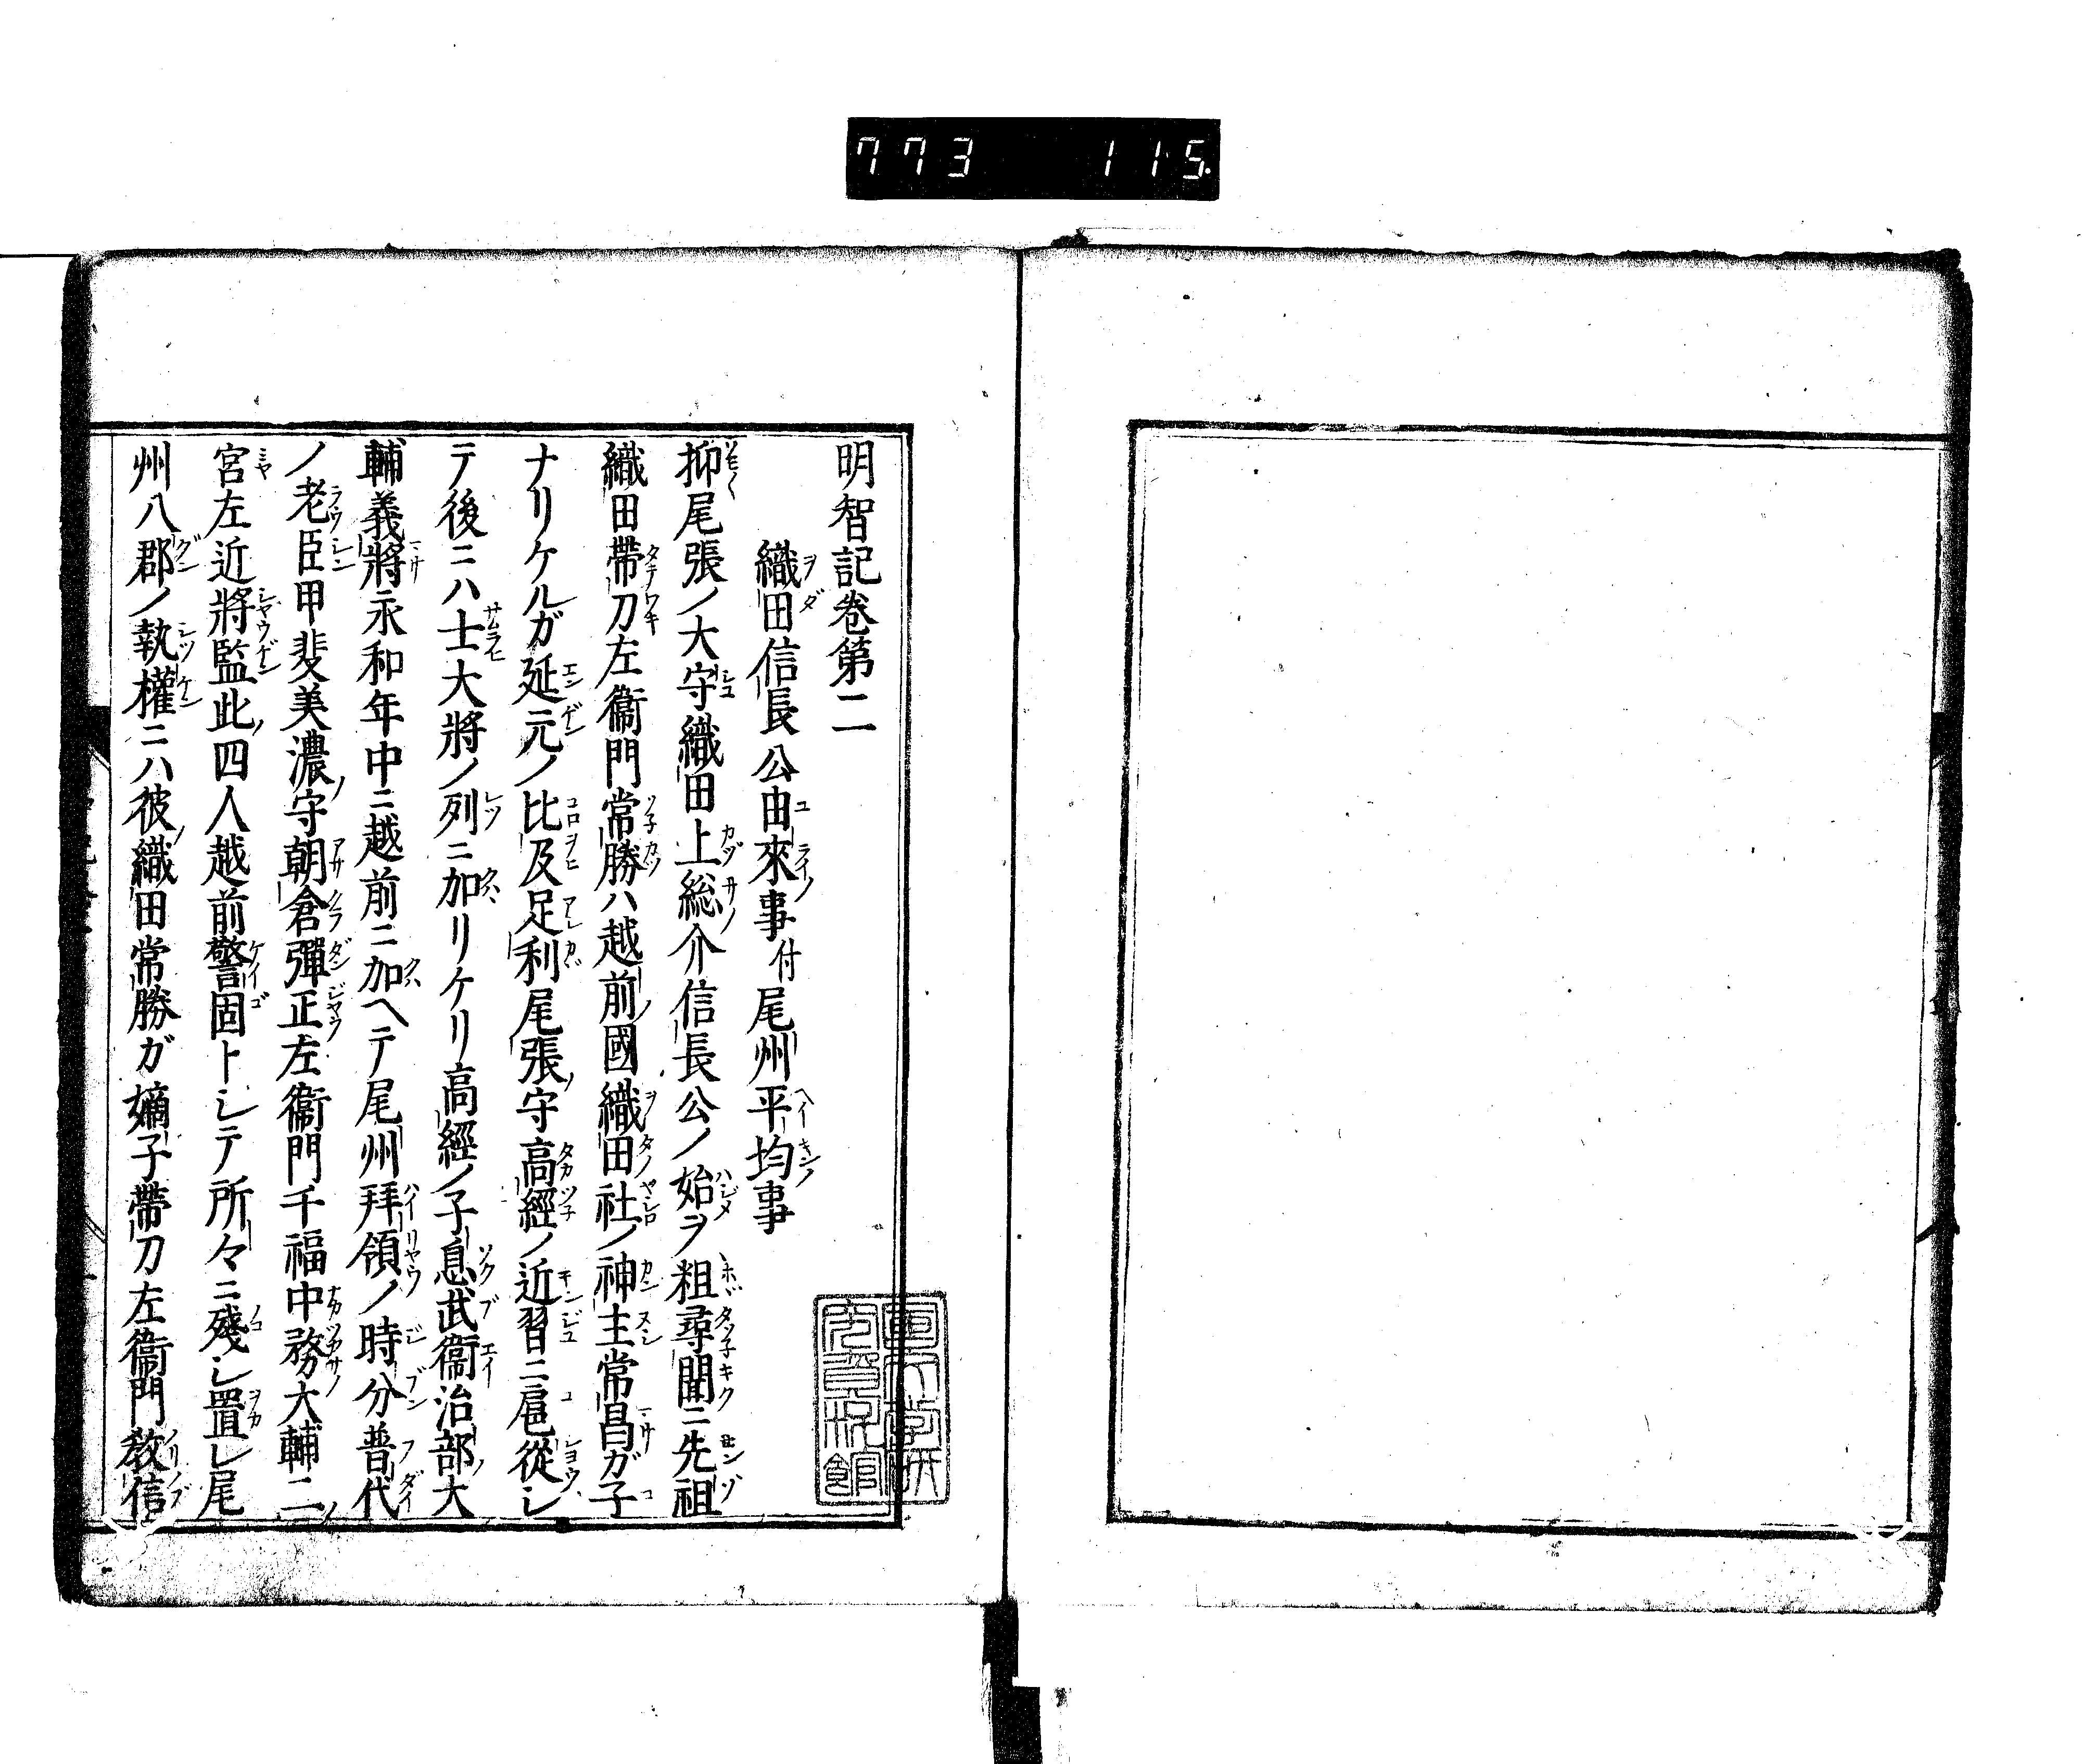 773 115
明智記巻第二
織田信長公由來事付尾州平均事
抑尾張ノ大守織田上総介信長公ノ始ヲ粗尋聞ニ先祖
織田帶刀左衞門常勝ハ越前國織田社ノ神主常昌ガ子
ナリケルガ延元ノ比及足利尾張守高經ノ近習ニ扈從シ
テ後ニハ士大將ノ列ニ加リケリ高經ノ子息武衞治部大
輔義將永和年中ニ越前ニ加ヘテ尾州拜領ノ時分普代
ノ老臣甲斐美濃守朝倉彈正左衞門千福中務大輔二
宮左近將監此四人越前警固トシテ所々ニ殘シ置レ尾
州八郡ノ執權ニハ彼織田常勝ガ嫡子帶刀左衞門教信